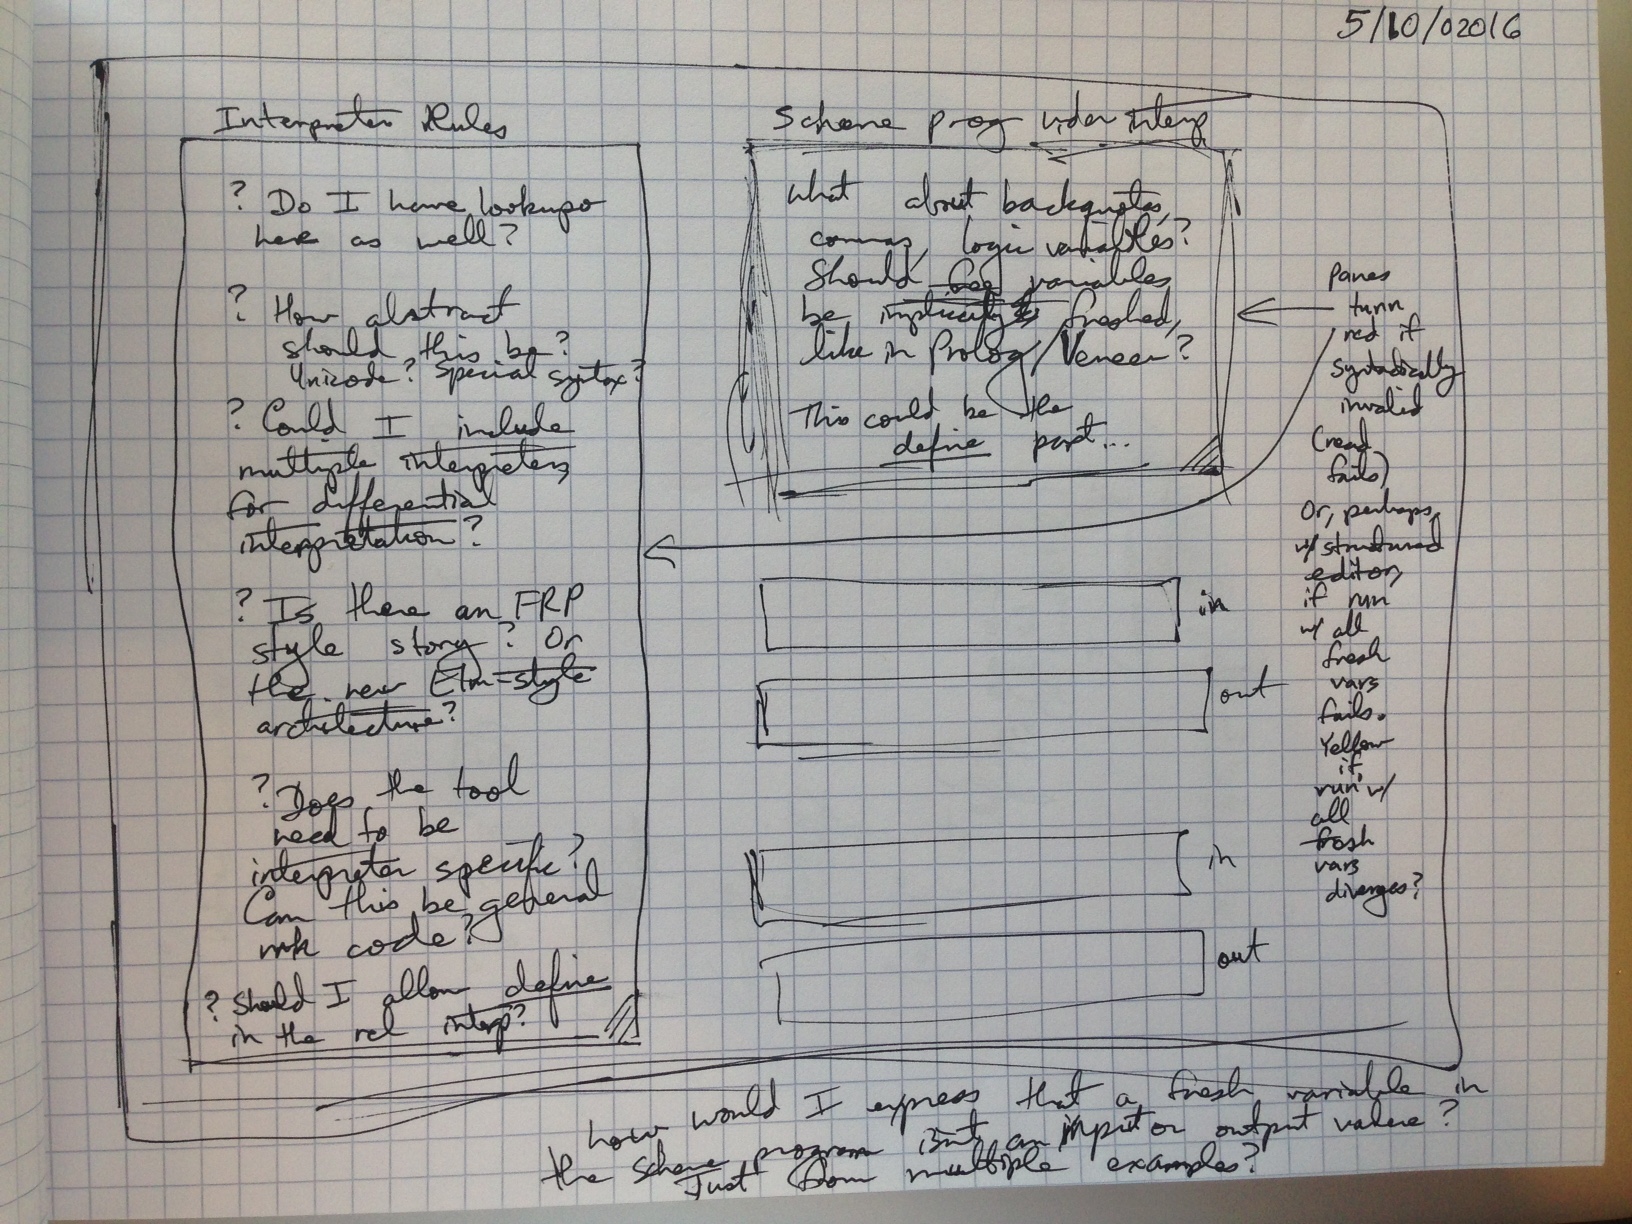 5/10/02016
Interpreter Rules
? Do I have lookupo
here as well?
? How abstract
should this be?
Unicode? Special syntax?
? Could I include
multiple interpreters
for differential
interpretation?
? Is there an FRP
style story? Or
the new Elm-style
architecture?
? Does the tool
need to be
interpreter specific?
Can this be general
mk code?
? Should I allow define
in the rel interp?
Scheme prog under interp
What about backquotes,
commas, logic variables?
Should logic variables
be implicitly freshed,
like in Prolog/Veneer?
This could be the
define part...
in
out
in
out
Panes
turn
red if
syntactically
invalid
(read
fails)
Or, perhaps,
w/structured
editor,
if run
w/ all
fresh
vars
fails.
Yellow
if
run w/
all
fresh
vars
diverges?
how would I express that a fresh variable in
the scheme program isn't an input or output value?
Just from multiple examples?